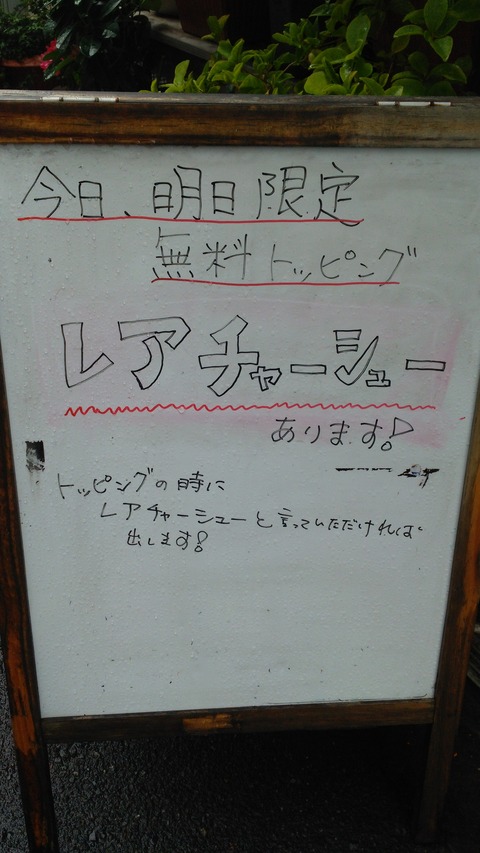 今日、明日限定
無料トッピング
レアチャーシュー
あります!
トッピングの時に
レアチャーシューと言っていただければ
出します!